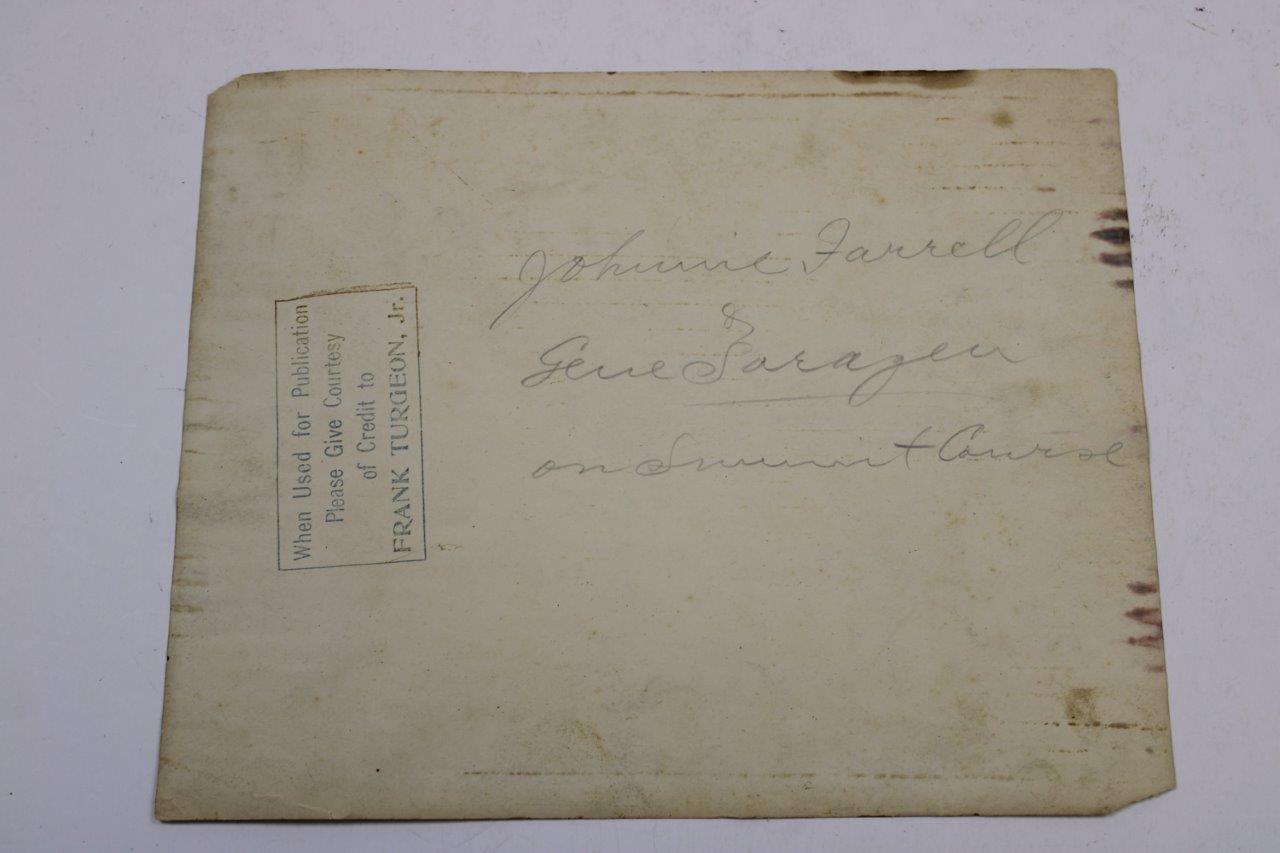 When Used for Publication
Please Give Courtesy
of Credit to
FRANK TURGEON, Jr.
Johnnie Farrell
&
Gene Sarazen
on Summit Course